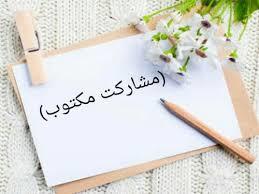 (مشارکت مکتوب)